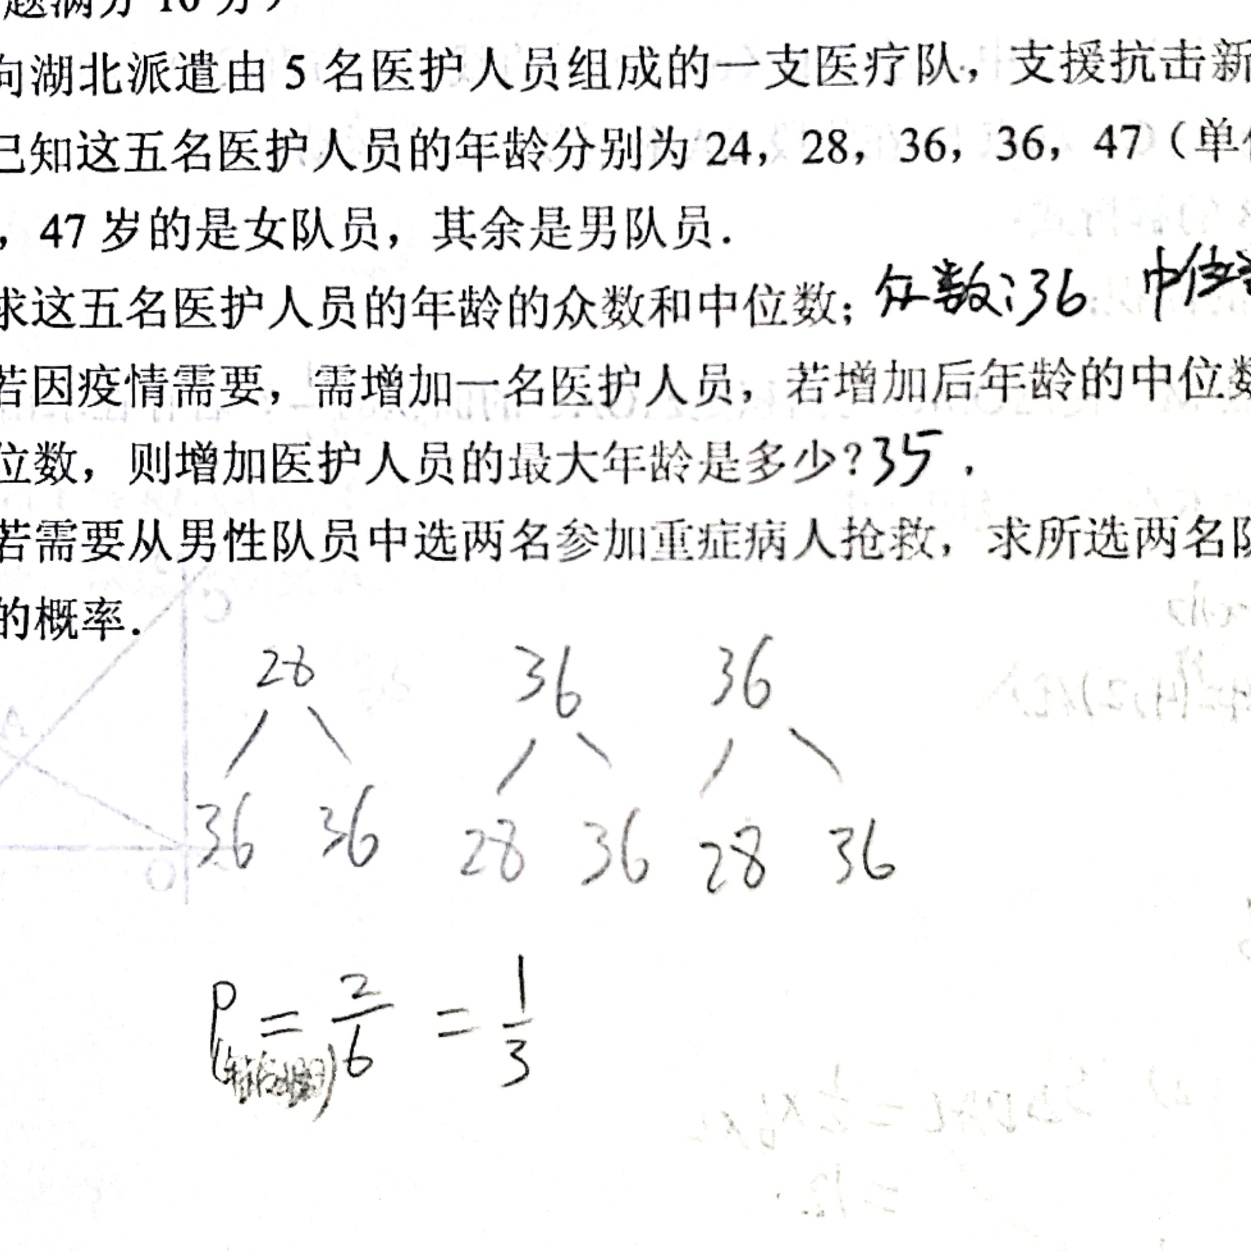 题满分 10 分)
向湖北派遣由 5 名医护人员组成的一支医疗队，支援抗击新
已知这五名医护人员的年龄分别为 24，28，36，36，47（单位
，47 岁的是女队员，其余是男队员．
求这五名医护人员的年龄的众数和中位数；众数:36 中位
若因疫情需要，需增加一名医护人员，若增加后年龄的中位数
位数，则增加医护人员的最大年龄是多少？35．
若需要从男性队员中选两名参加重症病人抢救，求所选两名队
的概率．
28 36 36
36 36 28 36 28 36
P = 2/6 = 1/3